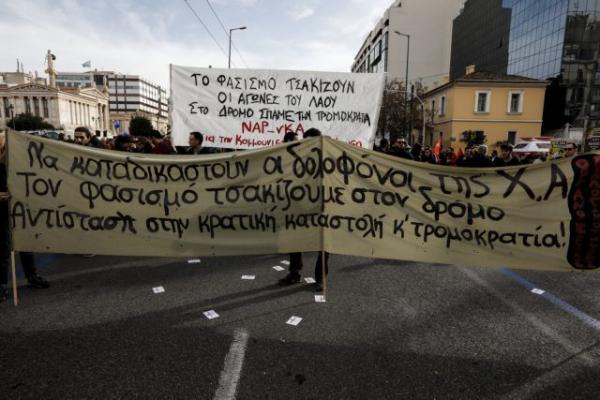 ΤΟ ΦΑΣΙΣΜΟ ΤΣΑΚΙΖΟΥΝ
ΟΙ ΑΓΩΝΕΣ ΤΟΥ ΛΑΟΥ
ΣΤΟ ΔΡΟΜΟ ΣΠΑΜΕ ΤΗΝ ΤΡΟΜΟΚΡΑΤΙΑ
ΝΑΡ-νΚΑ
για την
Να καταδικαστούν οι δολοφόνοι της Χ.Α
Τον φασισμό τσακίζουμε στον δρόμο
Αντίσταση στην κρατική καταστολή κ' τρομοκρατία!